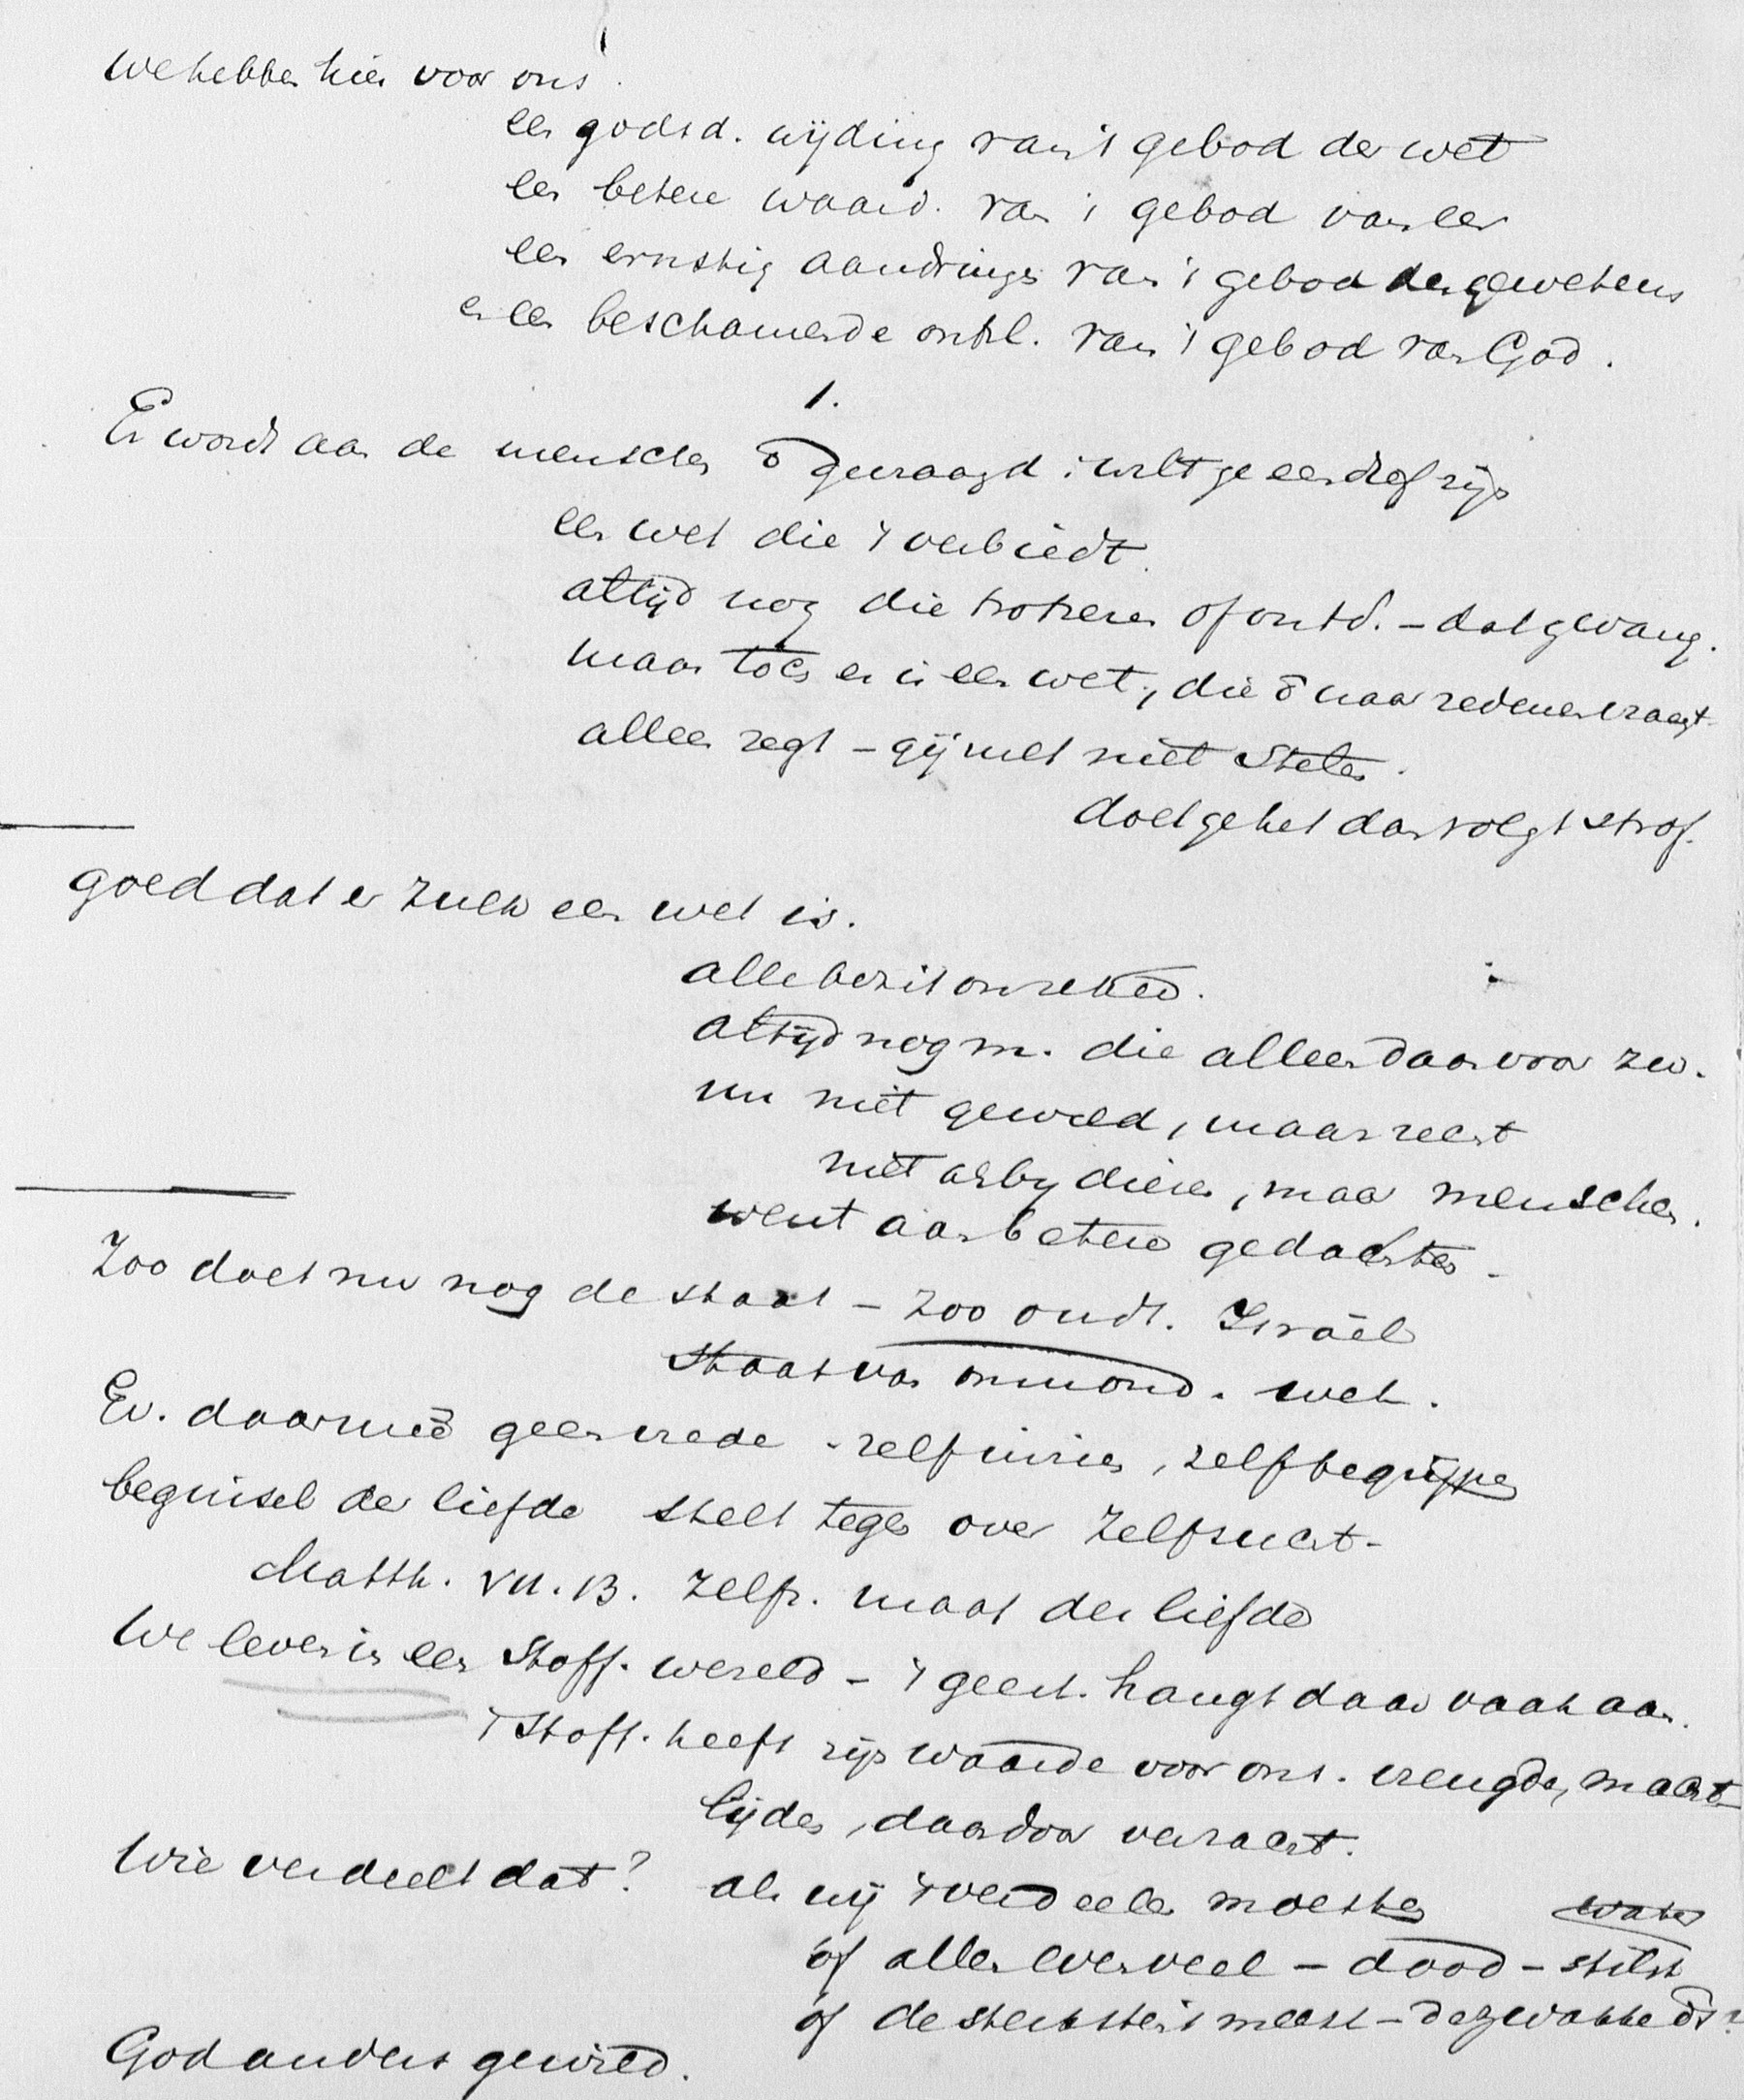 We hebben hier voor ons
een godsd. wijding van 't gebod der wet
een betere waard. van 't gebod van eer
een ernstig aandringen van 't gebod des gewetens
en een beschamende ontpl. van 't gebod van God.
1.
Er wordt aan de menschen gevraagd: wilt ge een dief zijn
een wet die 't verbiedt.
altijd nog die of ontd. – dat gevang.
maar toch er is een wet, die naar redenen vraagt
alleen zegt – gij zult niet stelen.
doet ge het dan volgt straf.
goed dat er zulk een wet is.
alle bezit onzeker.
altijd nog m. die alleen daarvoor zw.
nu niet geweld, maar recht
niet als by dieren, maar menschen.
went aan betere gedachten.
Zoo doet nu nog de staat – zoo oudt. Israël
Staat van onmond. wet.
Ev. daarmeê geen vrede
beginsel der liefde stelt tegen over zelfzucht –
Matth. VII. 13. zelfz. maat der liefde
We leven in een stoff. wereld – 't geest. hangt daar vaak aan.
't Stoff. heeft zijn waarde voor ons. vreugde, macht
lijden, daardoor veracht.
Wie verdeelt dat? als wij 't verdeelen moesten
of allen evenveel – dood – stilst
of de sterkste 't meest – de zwakke
God anders gewild.